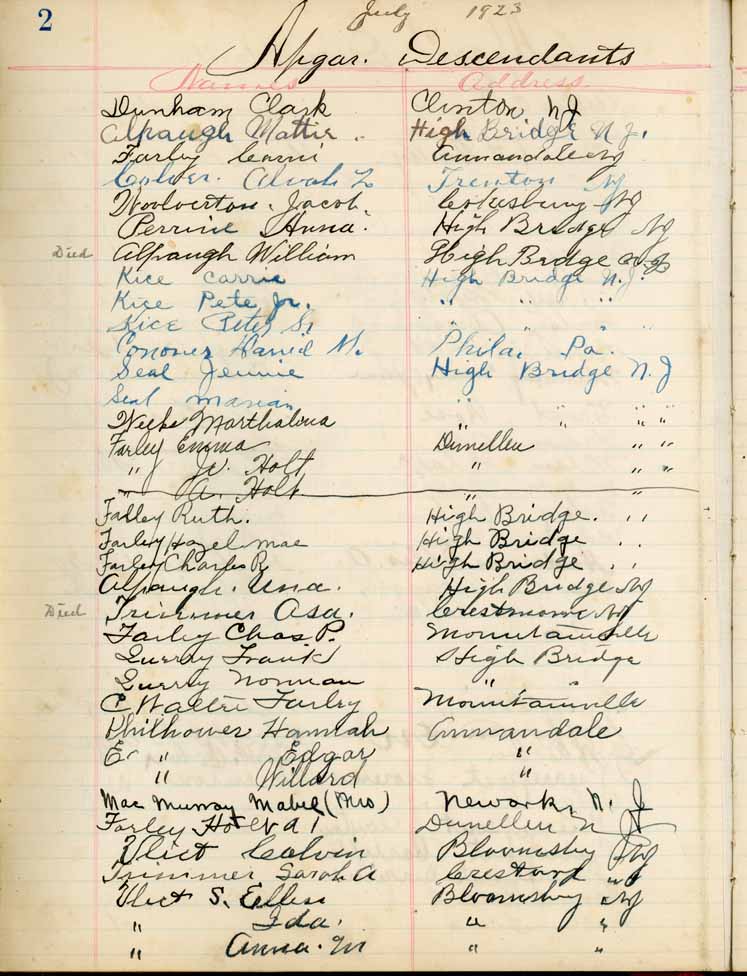 2
July 1923
Apgar. Descendants
Names Address
Dunham Clark Clinton NJ
Alpaugh Mattie. High Bridge N.J.
Farley Carrie Annandale NJ
Culver. Alvah L Trenton NJ
Woolverton. Jacob. Cokesbury NJ
Perrine Anna. High Bridge NJ
Died Alpaugh William High Bridge N.J.
Rice Carrie High Bridge N.J.
Rice Pete Jr. " " "
Rice Peter Sr " " "
Conover Harried M. Phila. Pa.
Seal Jennie High Bridge N.J
Seal Marian " " " "
Marthalona " " " "
Farley Emma Dunellen " "
" W. Holt " " "
" A. Holt " "
Farley Ruth. High Bridge. "
Farley Hazel Mae High Bridge "
Farley Charles R High Bridge "
Alpaugh. Una. High Bridge NJ
Died Trimmer Asa. NJ
Farley Chas P. Mountainville
Frank High Bridge
Norman " "
C Walter Farley Mountainville
Philhower Hannah Annandale
E " Edgar "
" Willard "
Mac Murray Mabel (Mrs) Newark, N. J
Farley Dunellen N J
Ulict Calvin Bloomsbury NJ
Trimmer Sarah A "
Ulict S. Bloomsbury NJ
" Ida. " "
" Anna. M " "